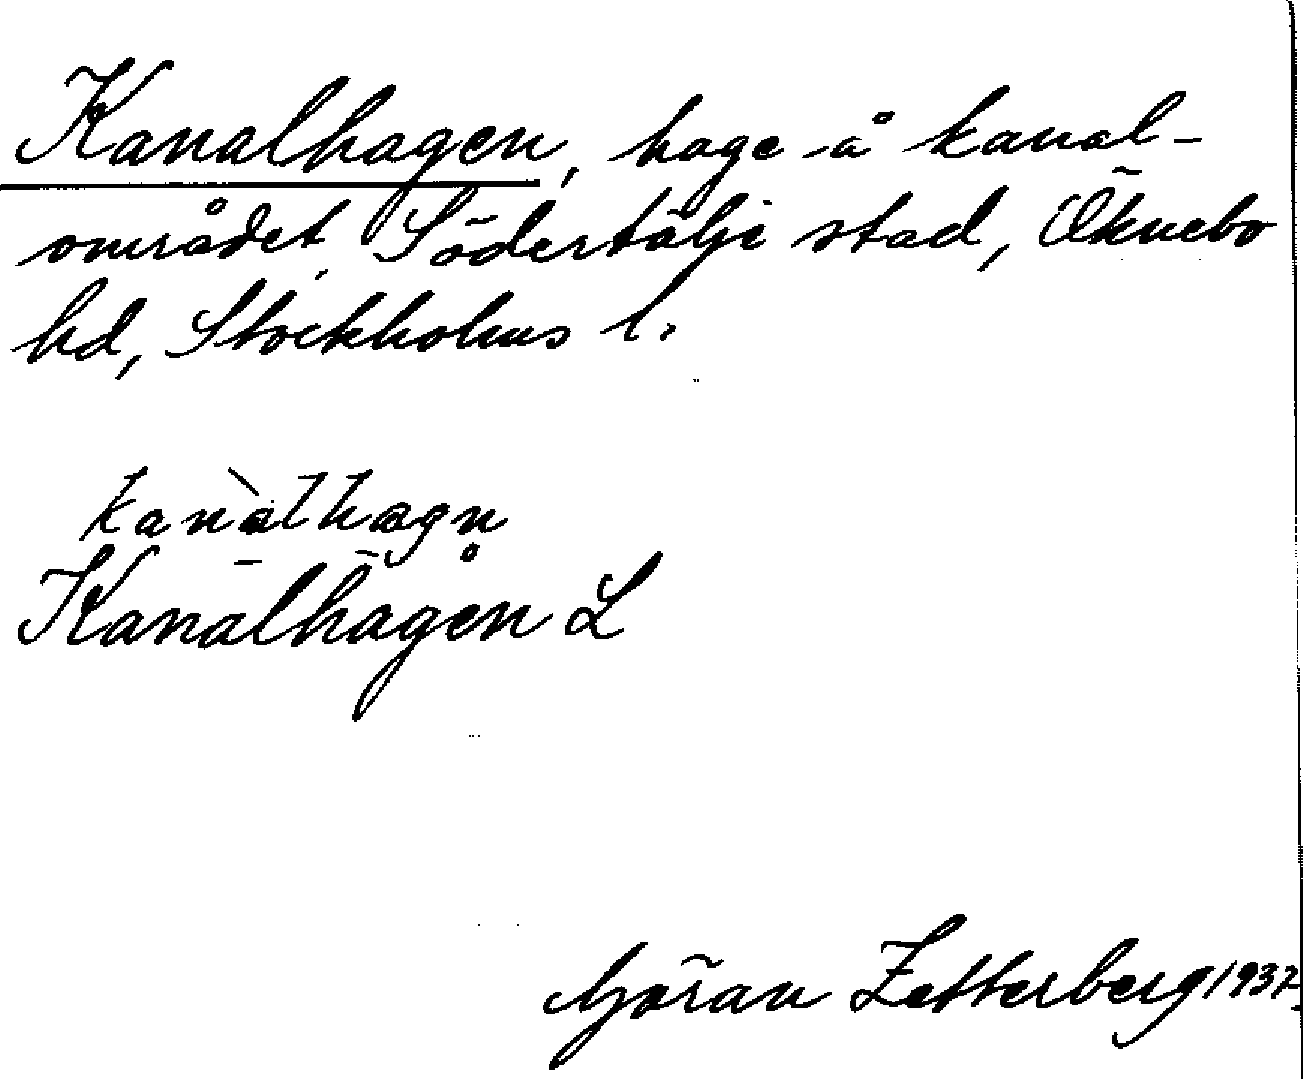 Kanalhagen, hage å kanal-
området, Södertälje stad, Öknebo
hd, Stockholms l.
kanàlhagn
Kanālhāgen̊ L
Göran Zetterberg 1937